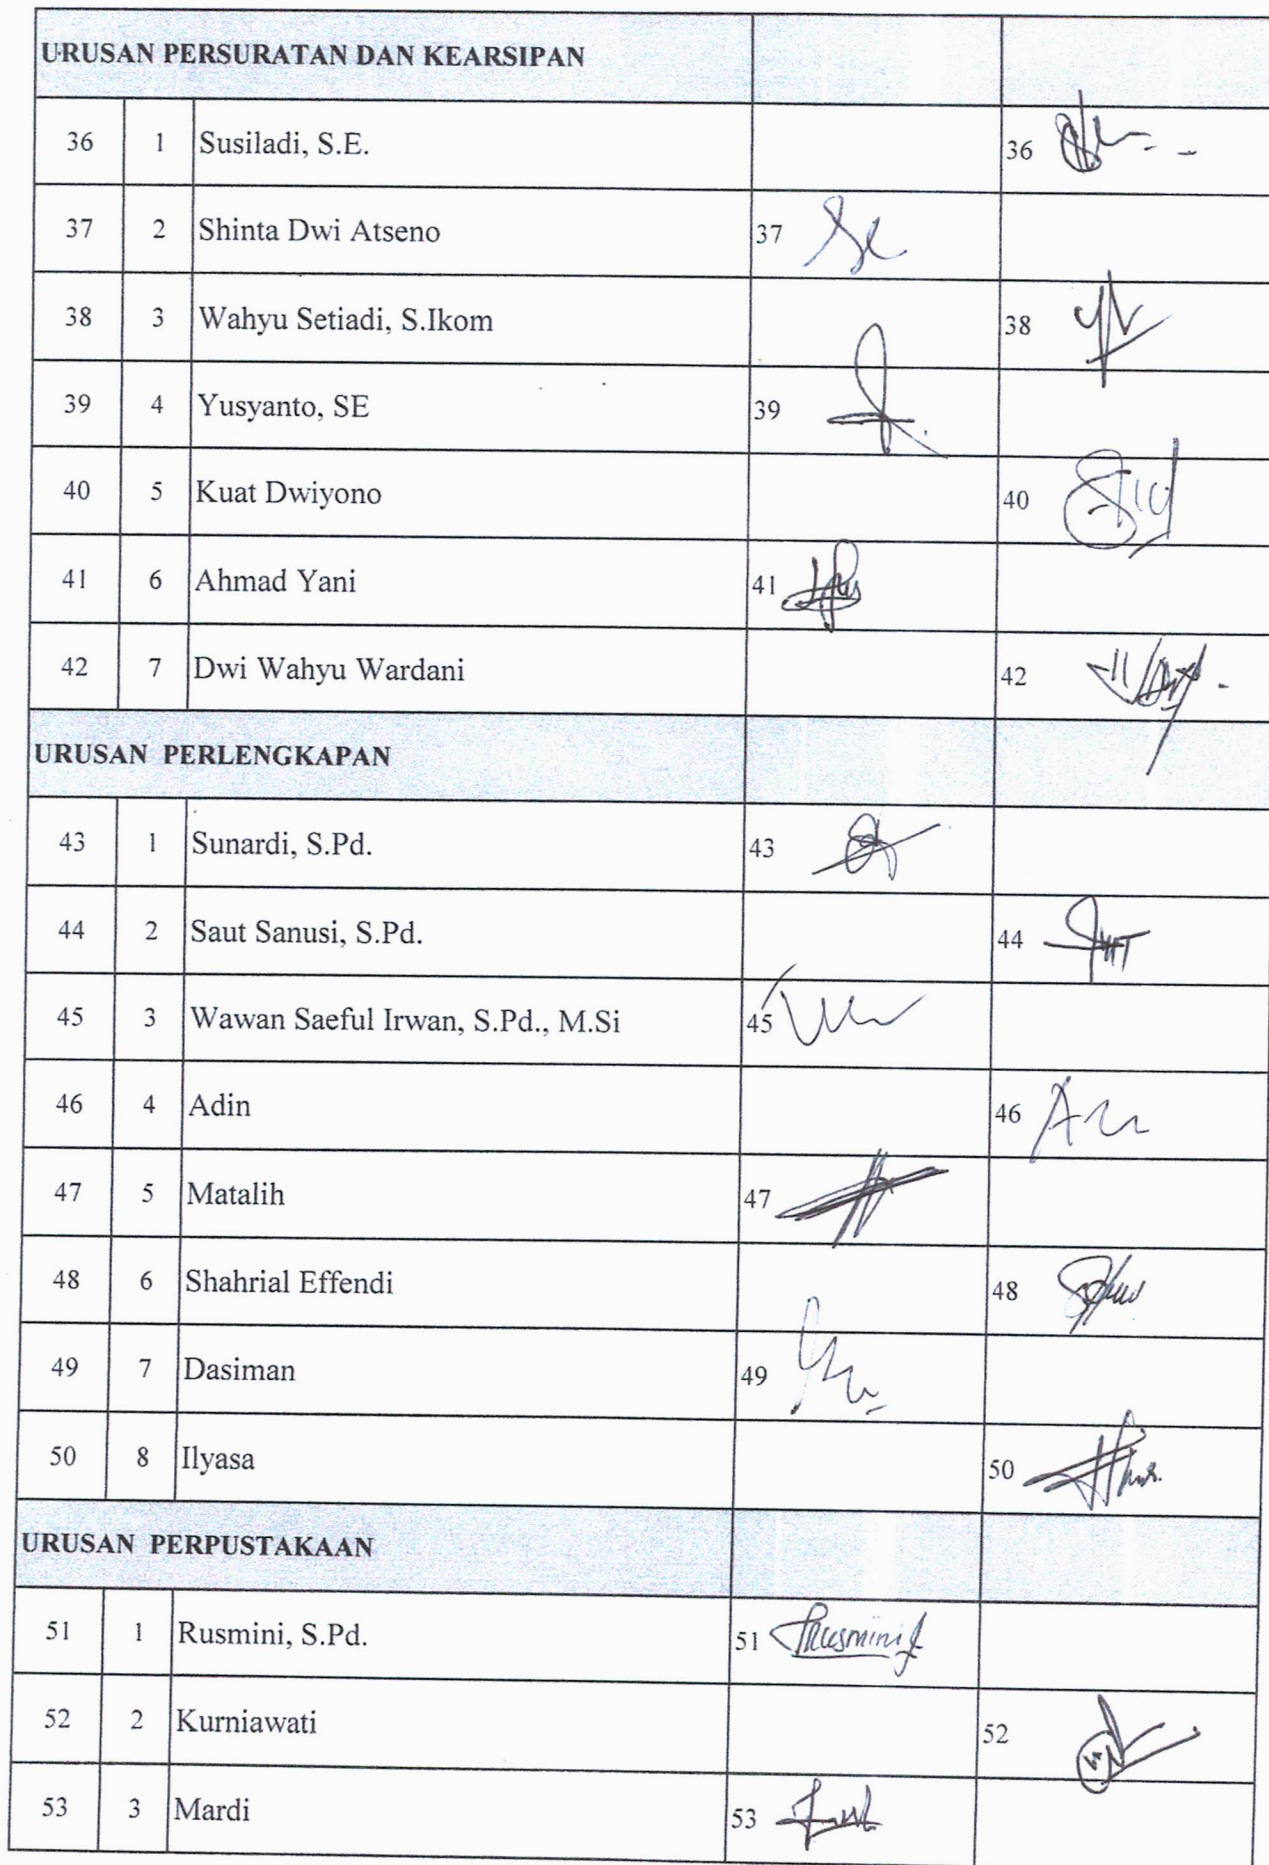 URUSAN PERSURATAN DAN KEARSIPAN
36 1 Susiladi, S.E. 36
37 2 Shinta Dwi Atseno 37
38 3 Wahyu Setiadi, S.Ikom 38
39 4 Yusyanto, SE 39
40 5 Kuat Dwiyono 40
41 6 Ahmad Yani 41
42 7 Dwi Wahyu Wardani 42
URUSAN PERLENGKAPAN
43 1 Sunardi, S.Pd. 43
44 2 Saut Sanusi, S.Pd. 44
45 3 Wawan Saeful Irwan, S.Pd., M.Si 45
46 4 Adin 46
47 5 Matalih 47
48 6 Shahrial Effendi 48
49 7 Dasiman 49
50 8 Ilyasa 50
URUSAN PERPUSTAKAAN
51 1 Rusmini, S.Pd. 51 Rusmini
52 2 Kurniawati 52
53 3 Mardi 53